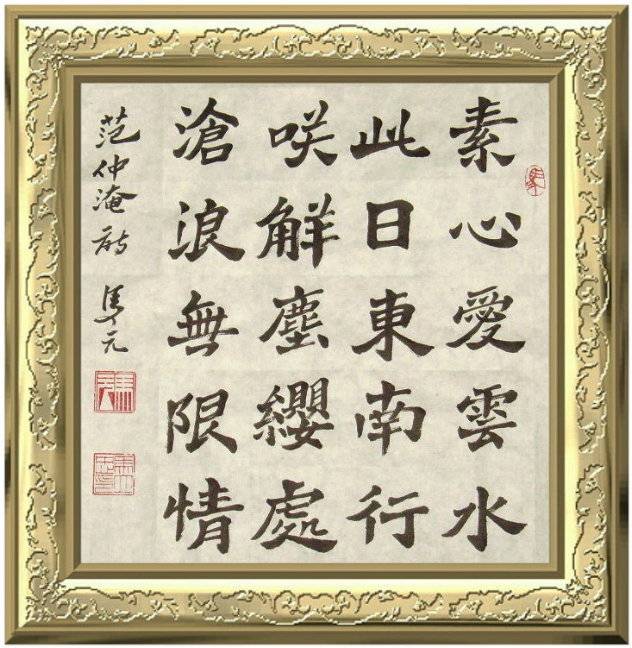 素心愛雲水
此日東南行
咲解塵纓處
滄浪無限情
范仲淹詩 馬元